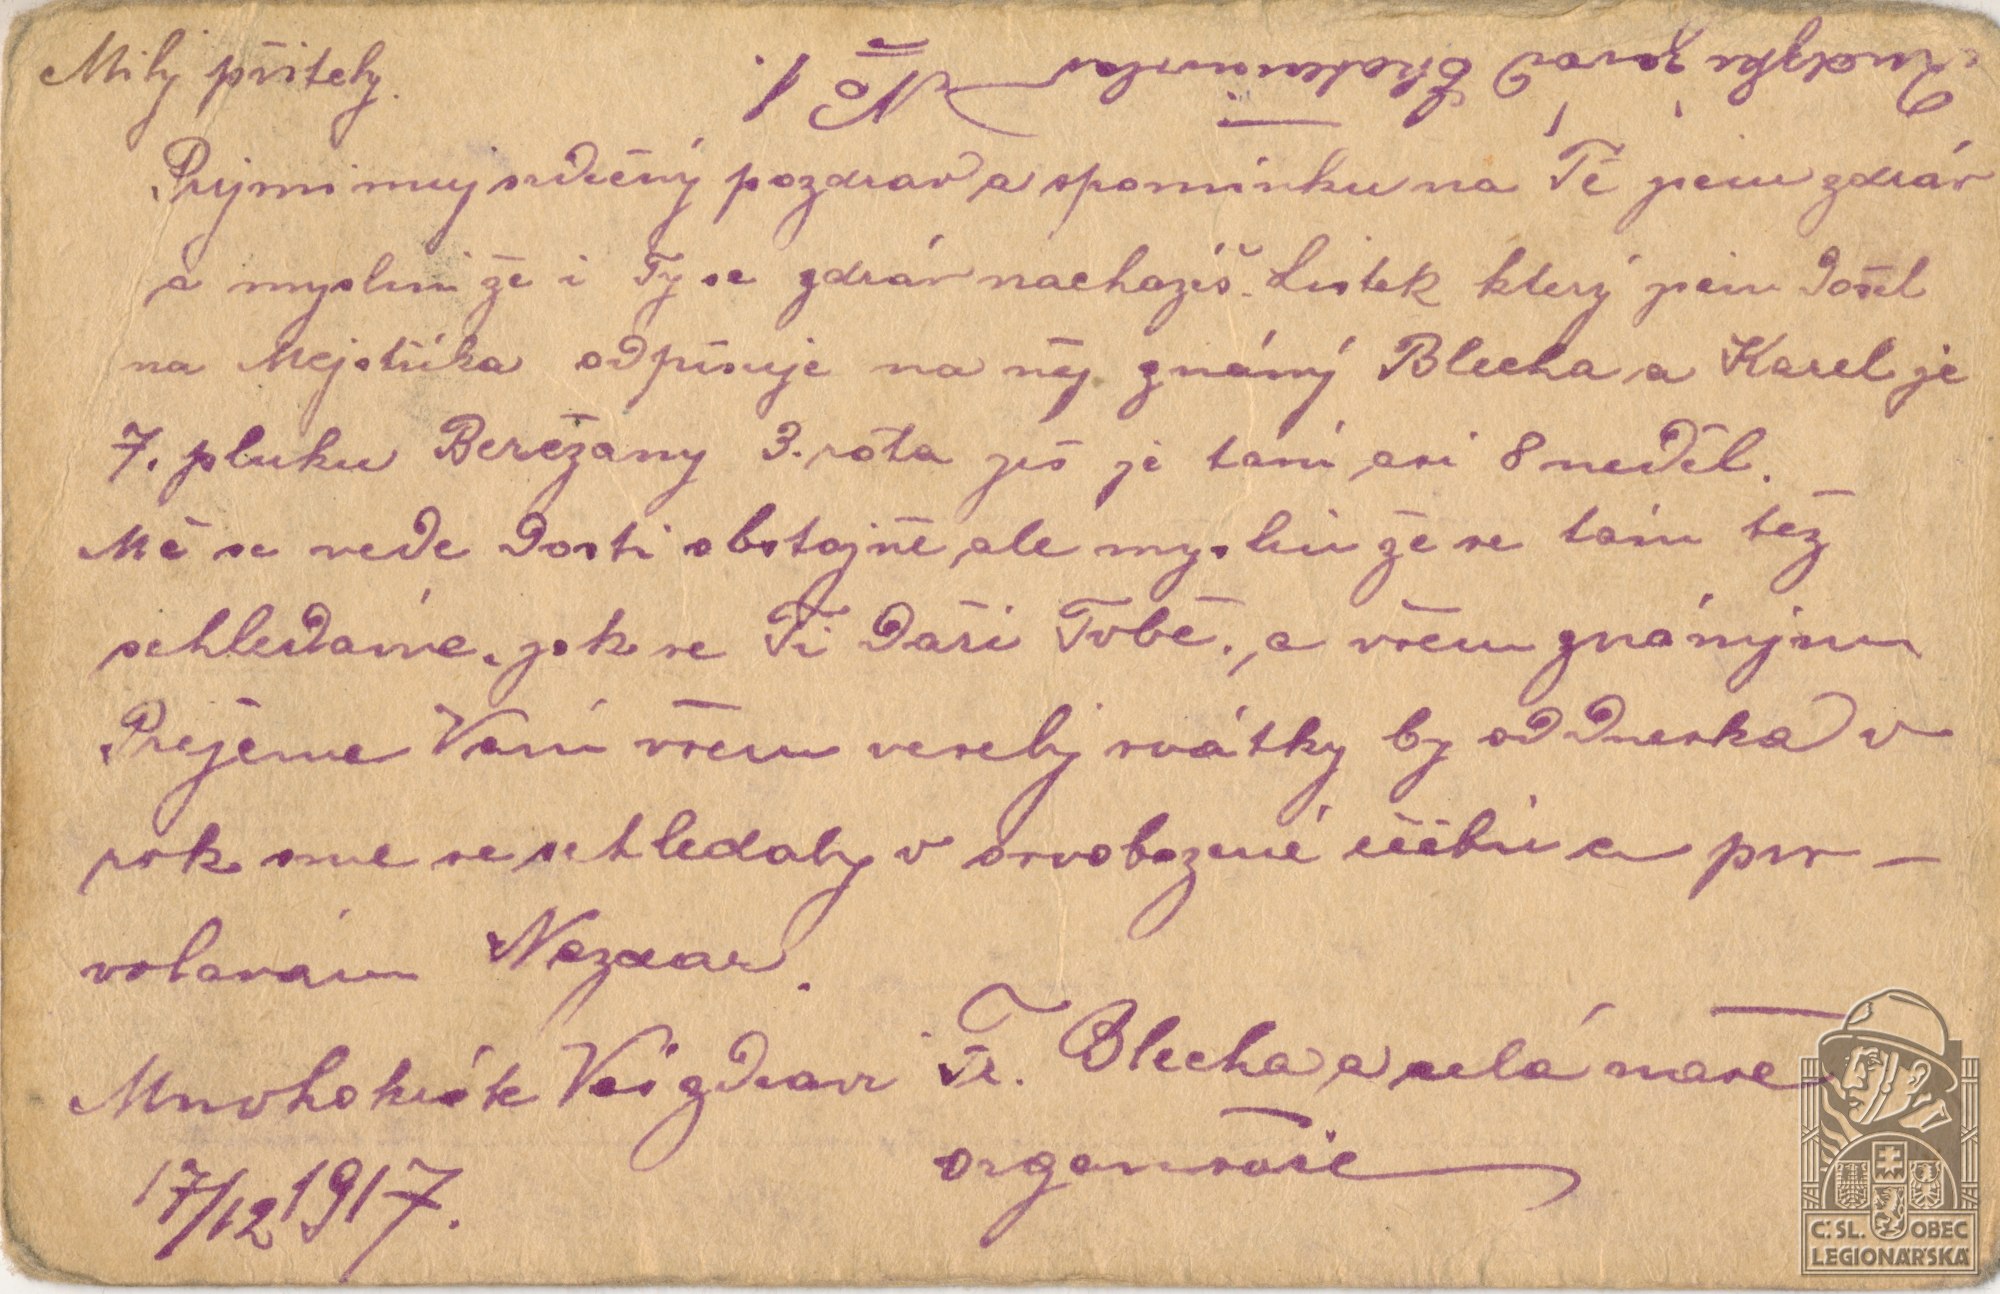 Milý příteli.
No 1.
Prijmi muj srdečný pozdrav a spomínku na Tě jsem zdráv
a myslim že i Ty se zdráv nacházíš. Lístek který jsem došel
na Mejstříka odpisuje na něj známý Blecha a Karel je
7. pluku Berežany 3. rota jiš je tam asi 8 neděl.
Mě se vede dosti obstojně ale myslim že se tam též
sehledáme. jak se Ti daři Tobě. a všem známým
Prejeme Vám všem veselý svátky by od dneska v
rok sme se sehledaly v osvobozené a pro-
volavám Nazdar.
Mnohokrát Vás zdraví Fr. Blecha a celá naše
organisace
17/12 1917.
Č.SL. OBEC
LEGIONÁŘSKÁ